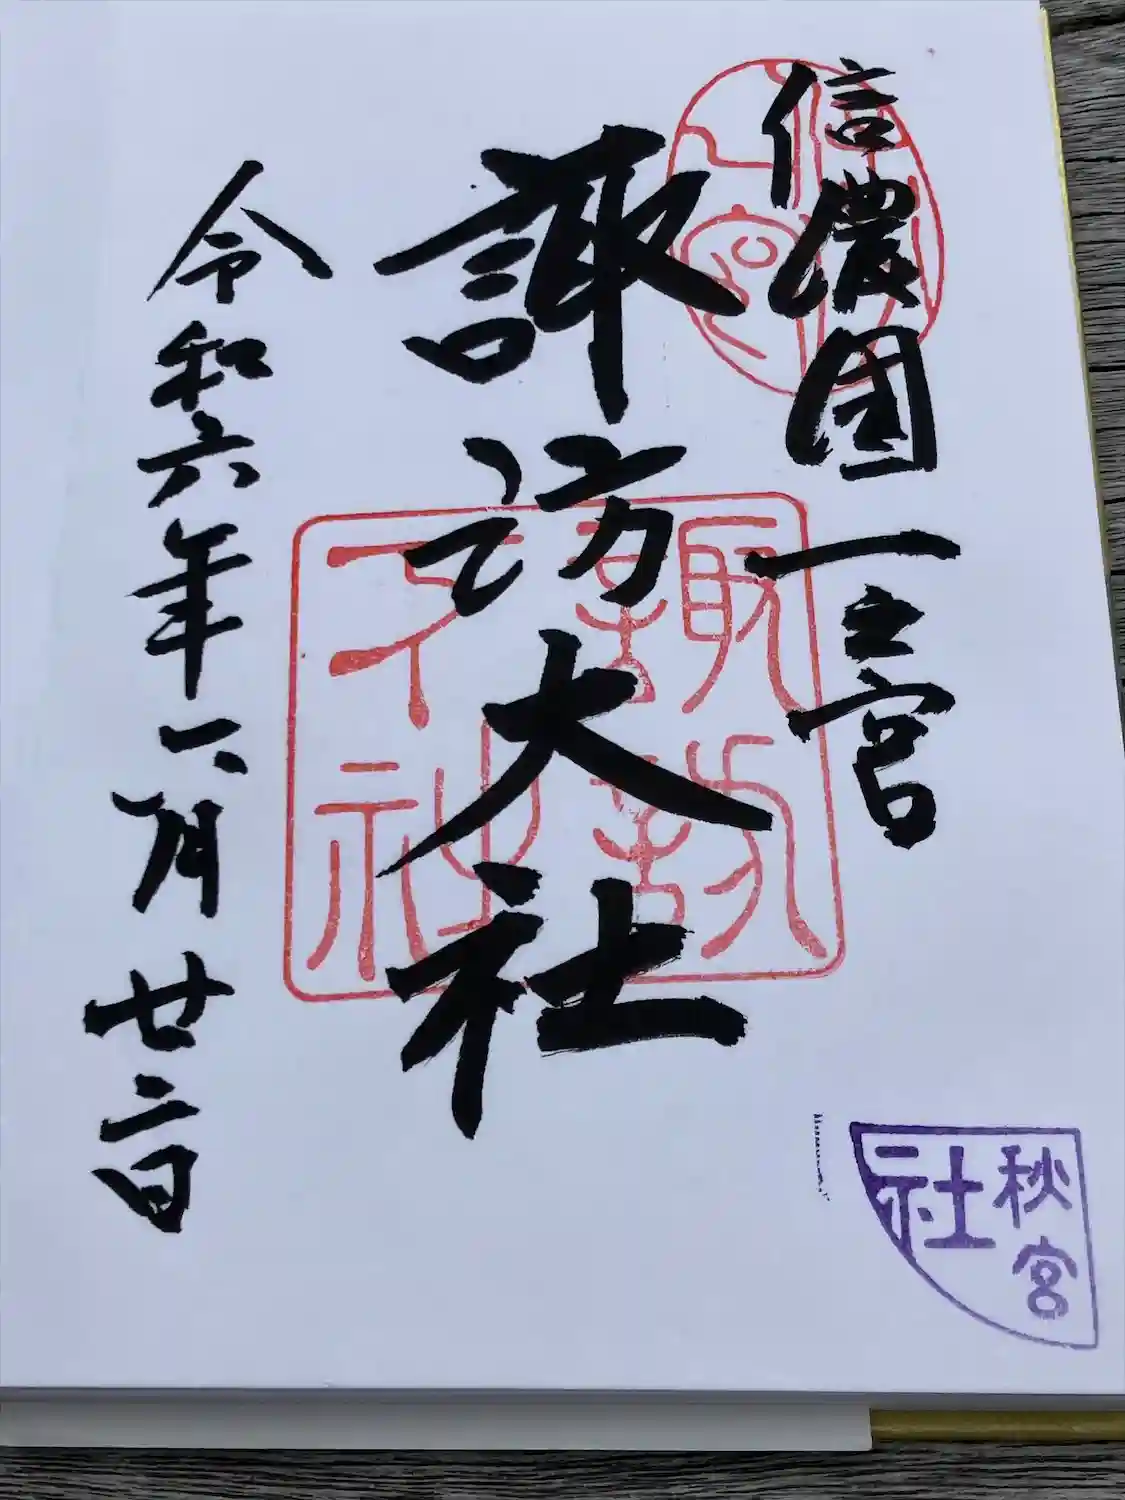 信濃国一之宮
諏訪大社
令和六年六月廿二日
諏訪
下社
秋宮
社